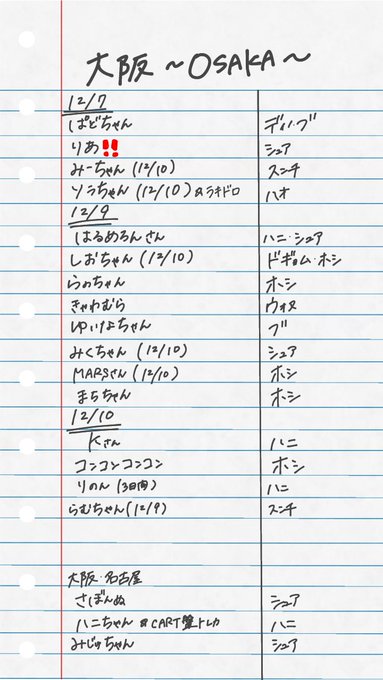 大阪 ~OSAKA~
12/7
ぱどちゃん ディノ・ブ
りあ‼ シュア
みーちゃん (12/10) スンチ
ソラちゃん (12/10) ※ラキドロ ハオ
12/9
はるめろんさん ハニ・シュア
しおちゃん (12/10) ドギョム・ホシ
らのちゃん ホシ
きゃわむら ウォヌ
ゆいぴよちゃん ブ
みくちゃん (12/10) シュア
MARSさん (12/10) ホシ
まちちゃん ホシ
12/10
Kさん ハニ
コンコンコンコン ホシ
りのん (3日間) ハニ
らむちゃん (12/9) スンチ
大阪・名古屋
さぼんぬ シュア
ハニちゃん ※CART盤トレカ ハニ
みじゅちゃん シュア